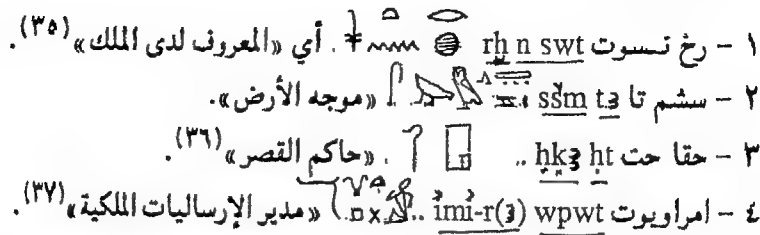 ١ - رخ نسوت rḫ n swt . أي «المعروف لدى الملك»(٣٥).
٢ - سشم تا sšm tꜣ «موجه الأرض».
٣ - حقا حت ḥḳꜣ ḥt .. «حاكم القصر»(٣٦).
٤ - امراوبوت imi-r(ꜣ) wpwt .. «مدير الإرساليات الملكية»(٣٧).